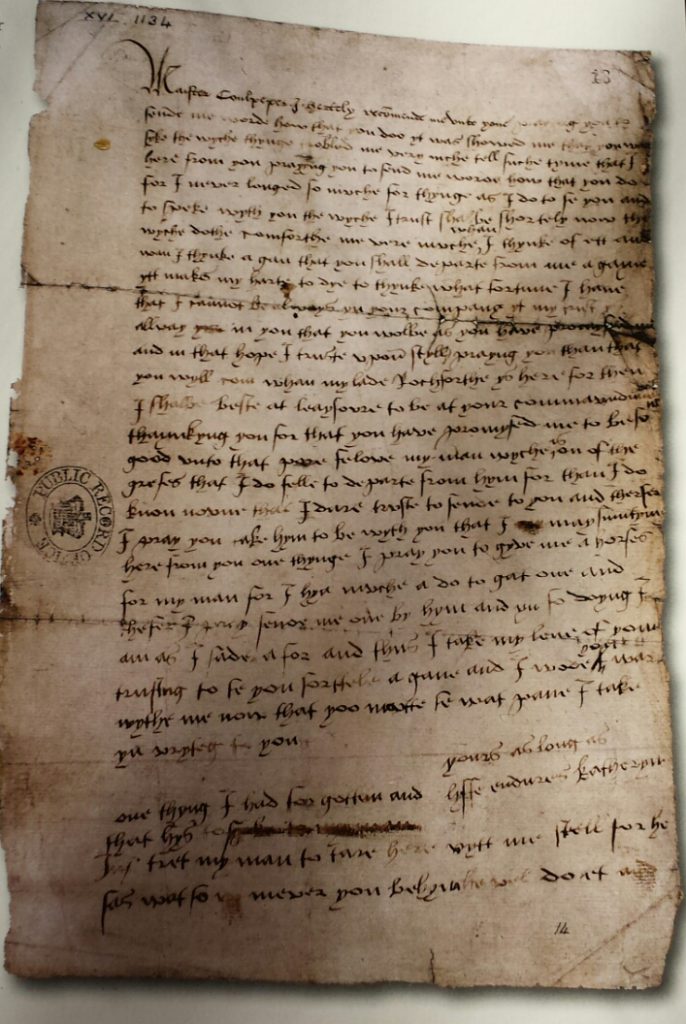 XVI. 1134
13
Maister Coulpeper I hertely recomende me unto youe praying you to
sende me worde how that you doo yt was showed me that you was
seke the wyche thynge trobled me very muche tell suche tyme that I
here from you praying you to send me worde how that you do
for I never longed so muche for thynge as I do to se you and
to speke wyth you the wyche I trust shal be shortely now the
wyche dothe comforthe me very muche whan I thynke of ett and
wan I thynke a gan that you shall departe from me a gane
ytt makes my harte to dye to thynke what fortune I have
that I cannot be always yn your company yt my trust ys
allway in you that you wolbe as you have promysed me
and in that hope I truste upon styll prayng you than that
you wyll com whan my lade Rochforthe ys here for then
I shalbe beste at leaysoure to be at your commandment
thaynkyng you for that you have promysed me to be so
good unto that pore felowe my man wyche ys on of the
grefes that I do felle to departe from hym for than I do
know noone that I dare truste to sende to you and therfor
I pray you take hym to be wyth you that I may sumtym
here from you one thynge I pray you to gyve me a horse
for my man for I hyd muche a do to gat one and
therfer I pray sende me one by hym and yn so doying I
am as I sade afor and thus I take my leve of you
trusting to se you shorttele a gane and I wode you war
wythe me now that yoo maitte se wat pane I take
yn wryteg to you
yours as long as
lyffe endures
Katheryn
one thyng I had forgotten and
that hys to
intret my man to tare here wytt me still for he
sas wat so mever you bed hym he wel do et
14
PUBLIC RECORD OFFICE